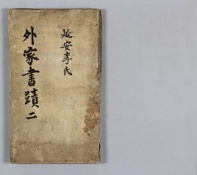 延安李氏
外家書蹟 二